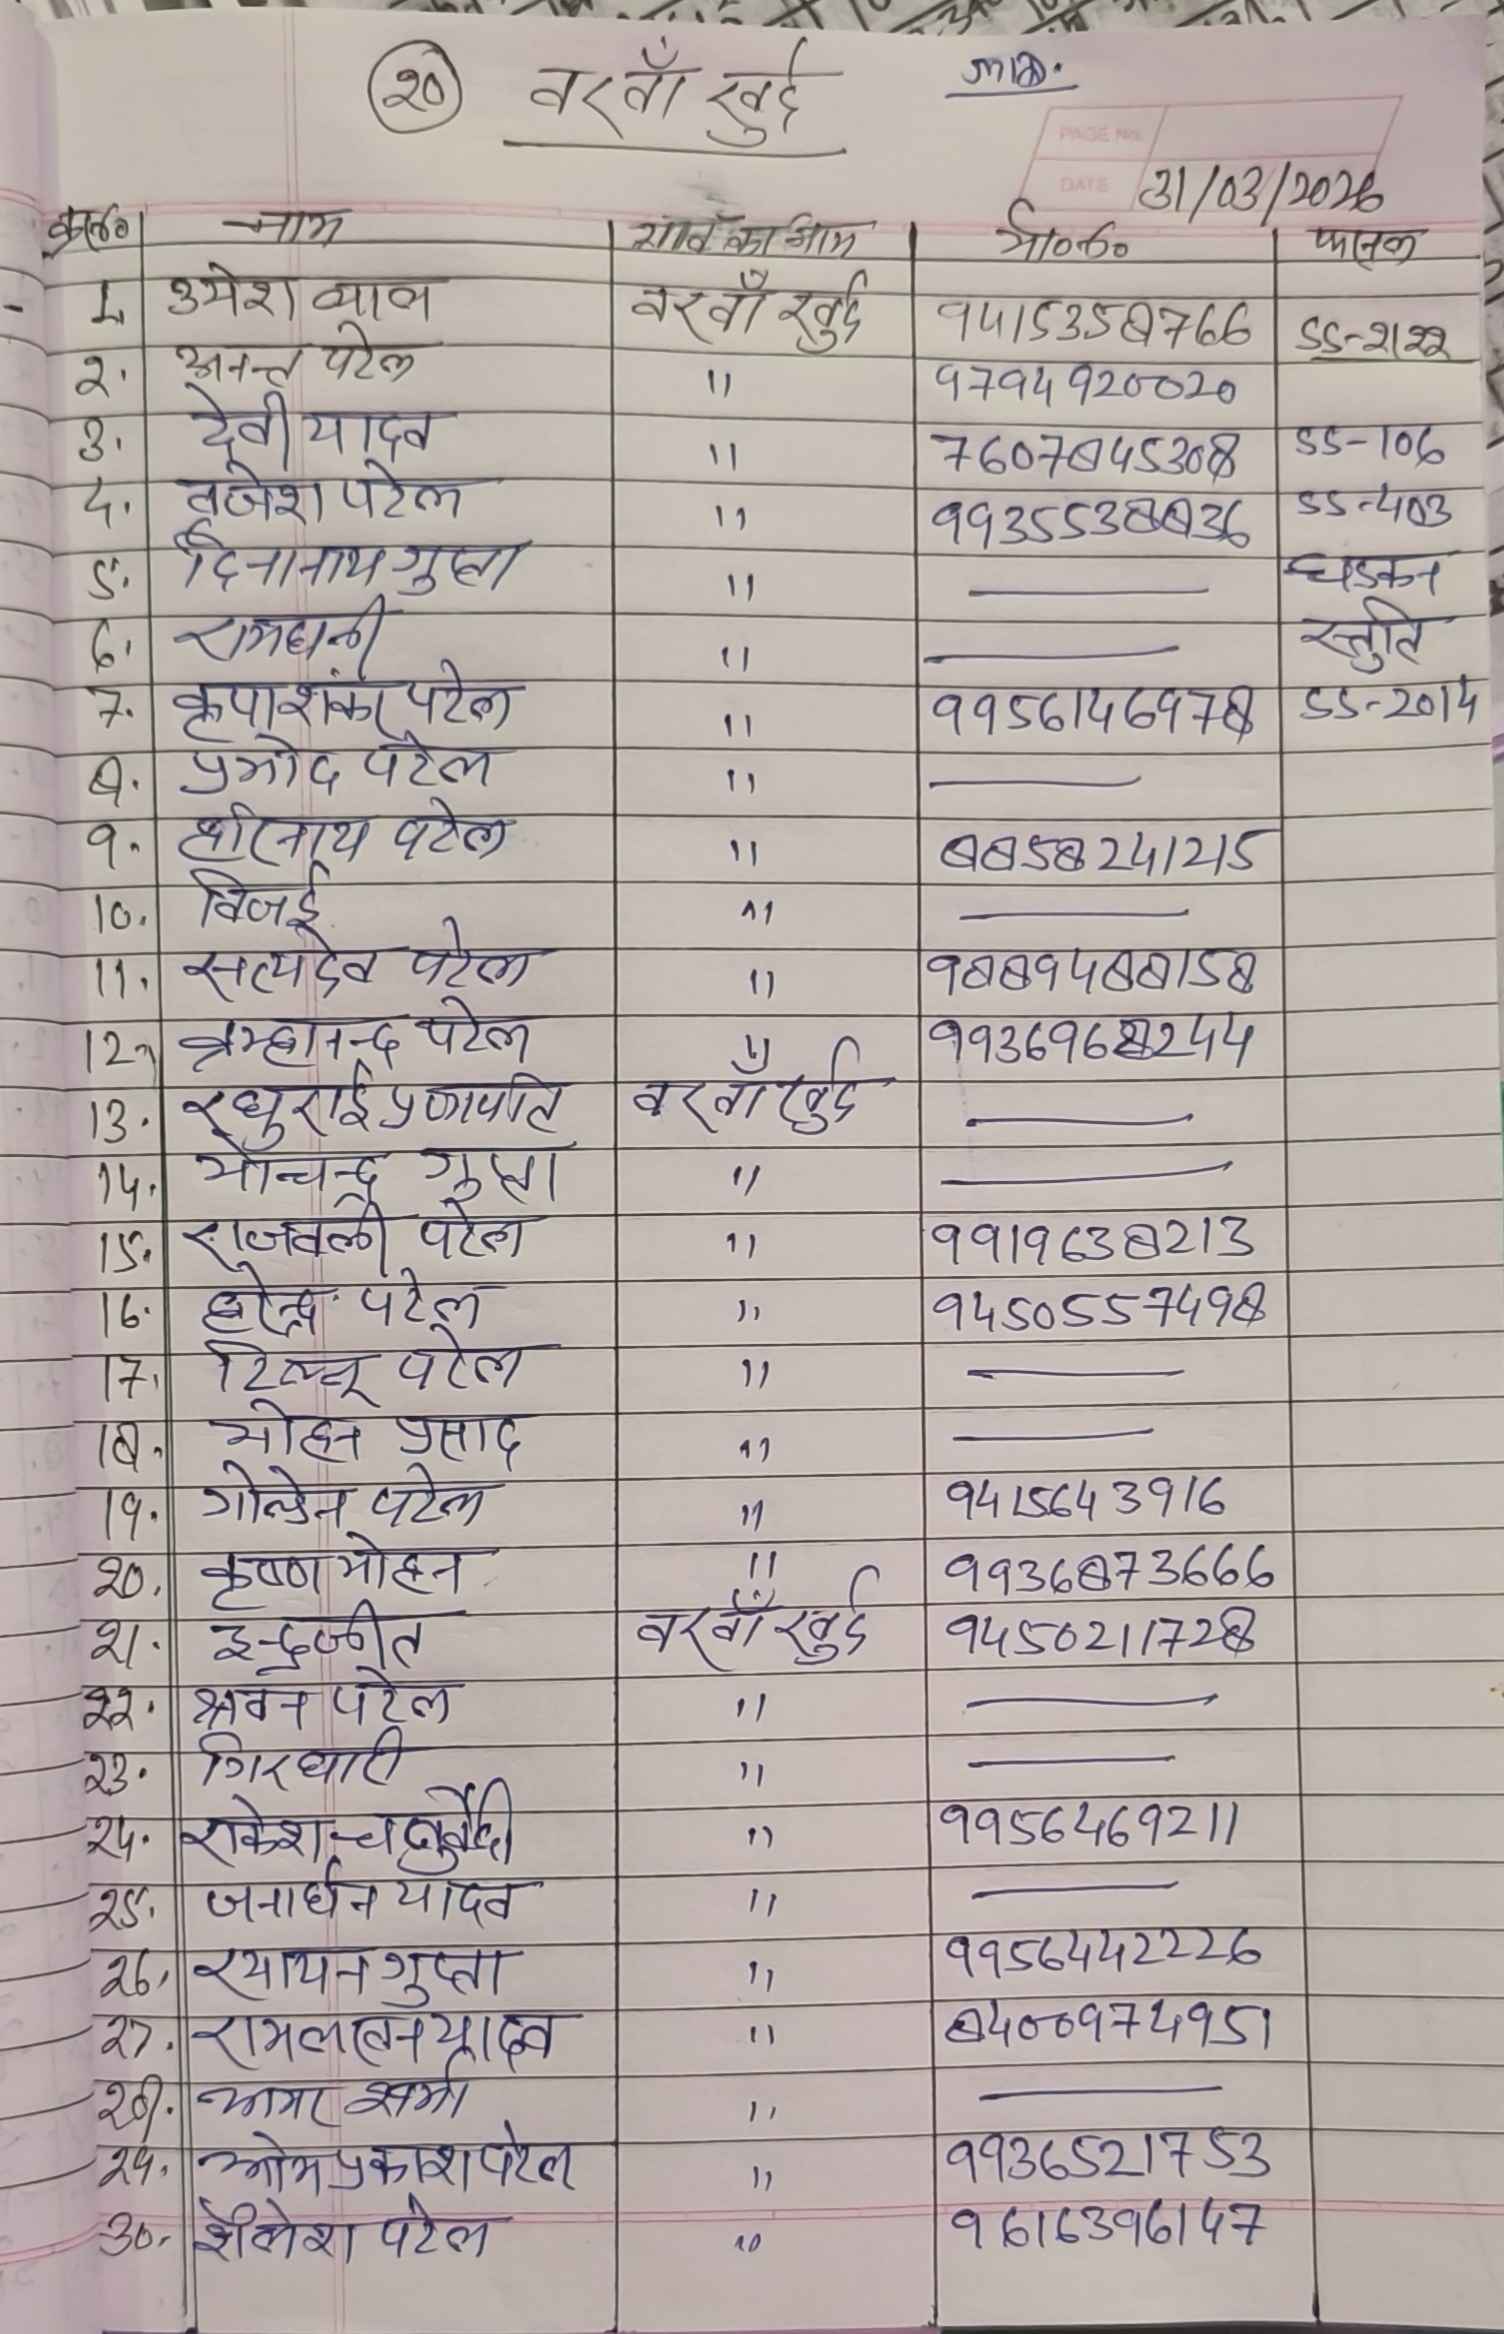 २० वरवाँ खुर्द
PAGE No.
DATE 31/03/2026
क्र०सं० नाम गाँव का नाम मो०नं० फसल
1. उमेश व्यास वरवाँ खुर्द 9415358766 SS-२१२२
२. अनन्त पटेल " 9794920020
3. देवी यादव " 7607845308 SS-106
४. बृजेश पटेल " 9935538836 SS-403
5. दिनानाथ गुप्ता " — धडकन
6. रामधनी " — स्तुति
7. कृपाशंकर पटेल " 9956146978 SS-2014
8. प्रमोद पटेल " —
9. हरिनाथ पटेल " 8858241215
10. विजई " —
11. सत्यदेव पटेल " 9889488158
12. ब्रम्हानन्द पटेल " 9936968244
13. रघुराई प्रजापति वरवाँ खुर्द —
14. गुप्ता " —
15. राजवली पटेल " 9919638213
16. हरेन्द्र पटेल " 9450557498
17. पटेल " —
18. मोहन प्रसाद " —
19. गोल्डेन पटेल " 9415643916
२0. कृष्ण मोहन " 9936873666
२1. इन्द्रजीत वरवाँ खुर्द 9450211728
२२. श्रवन पटेल " —
२3. गिरधारी " —
२4. राकेश चतुर्वेदी " 9956469211
२5. जनार्धन यादव " —
२6. गुप्ता " 9956442226
२7. रामललन यादव " 8400974951
२8. अमर शर्मा " —
२9. ओमप्रकाश पटेल " 9936521753
30. शैलेश पटेल " 9616396147